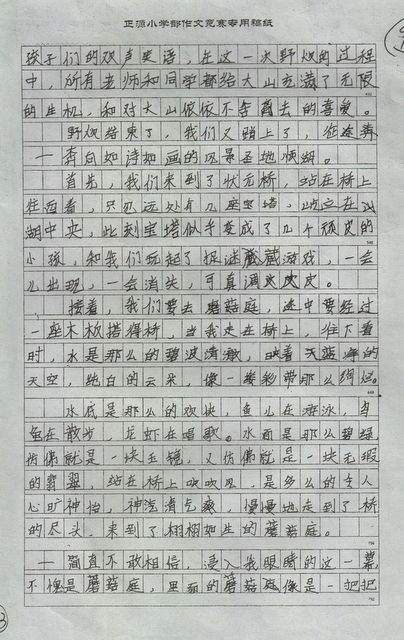 正源小学部作文竞赛专用稿纸
孩子们的欢声笑语，在这一次野炊的过程
中，所有老师和同学都给大山充满了无限
的生机，和对大山依依不舍离去的喜爱。
野炊结束了，我们又踏上了，在途奔
一奔向如诗如画的风景圣地 湖。
首先，我们来到了状元桥，站在桥上
往西看，只见远处有几座宝塔，屹立在
湖中央，此刻宝塔似乎变成了几个顽皮的
小孩，和我们玩起了捉迷藏藏游戏，一会
儿出现，一会消失，可真调皮皮皮。
接着，我们要去蘑菇庭，途中要经过
一座木板搭得桥，当我走在桥上，往下看
时，水是那么的碧波清澈，映着天蓝 的
天空，纯白的云朵，像一缕彩带那么绚烂。
水底是那么的欢快，鱼儿在游泳，乌
龟在散步，龙虾在唱歌。水面是那么碧绿，
仿佛就是一块玉镜，又仿佛就是一块无瑕
的翡翠，站在桥上吹吹风，是多么的令人
心旷神怡，神清气爽，慢慢地走到了桥
的尽头，来到了栩栩如生的蘑菇庭。
一简直不敢相信，浸入我眼睛的这一幕，
不愧是蘑菇庭，里面的蘑菇庭像是一把把